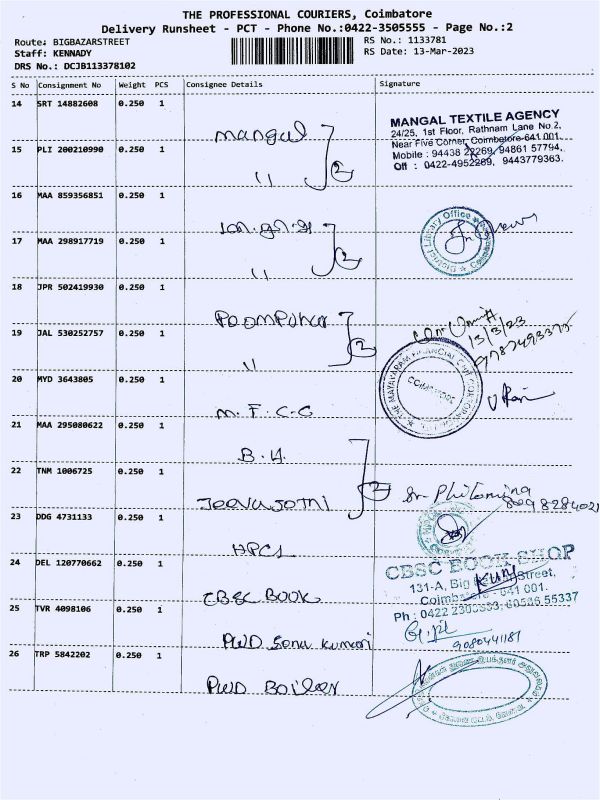 THE PROFESSIONAL COURIERS, Coimbatore
Delivery Runsheet - PCT - Phone No.:0422-3505555 - Page No.:2
Route: BIGBAZARSTREET RS No.: 1133781
Staff: KENNADY RS Date: 13-Mar-2023
DRS No.: DCJB113378102
S No Consignment No Weight PCS Consignee Details Signature
14 SRT 14882608 0.250 1 Mangal
MANGAL TEXTILE AGENCY
24/25, 1st Floor, Rathnam Lane No.2,
Near Five Corner, Coimbatore-641 001.
Mobile : 94438 22269, 94861 57794,
Off : 0422-4952269, 9443779363.
15 PLI 200210990 0.250 1 "
2
16 MAA 859356851 0.250 1
District Library Office
17 MAA 298917719 0.250 1 "
2
18 JPR 502419930 0.250 1 Poompuhar
13/3/23
19 JAL 530252757 0.250 1 "
2
20 MYD 3643805 0.250 1 M.F.C.C
COIMBATORE
21 MAA 295080622 0.250 1 B.H.
22 TNM 1006725 0.250 1 Jeevajothi
2
Sr. Philomina
23 DDG 4731133 0.250 1 HPCL
24 DEL 120770662 0.250 1 CBSC BOOK
CBSC BOOK SHOP
131-A, Big Street,
Coimbatore - 641 001.
25 TVR 4098106 0.250 1 PWD Sonu Kumari
9080441181
26 TRP 5842202 0.250 1 PWD Boiler